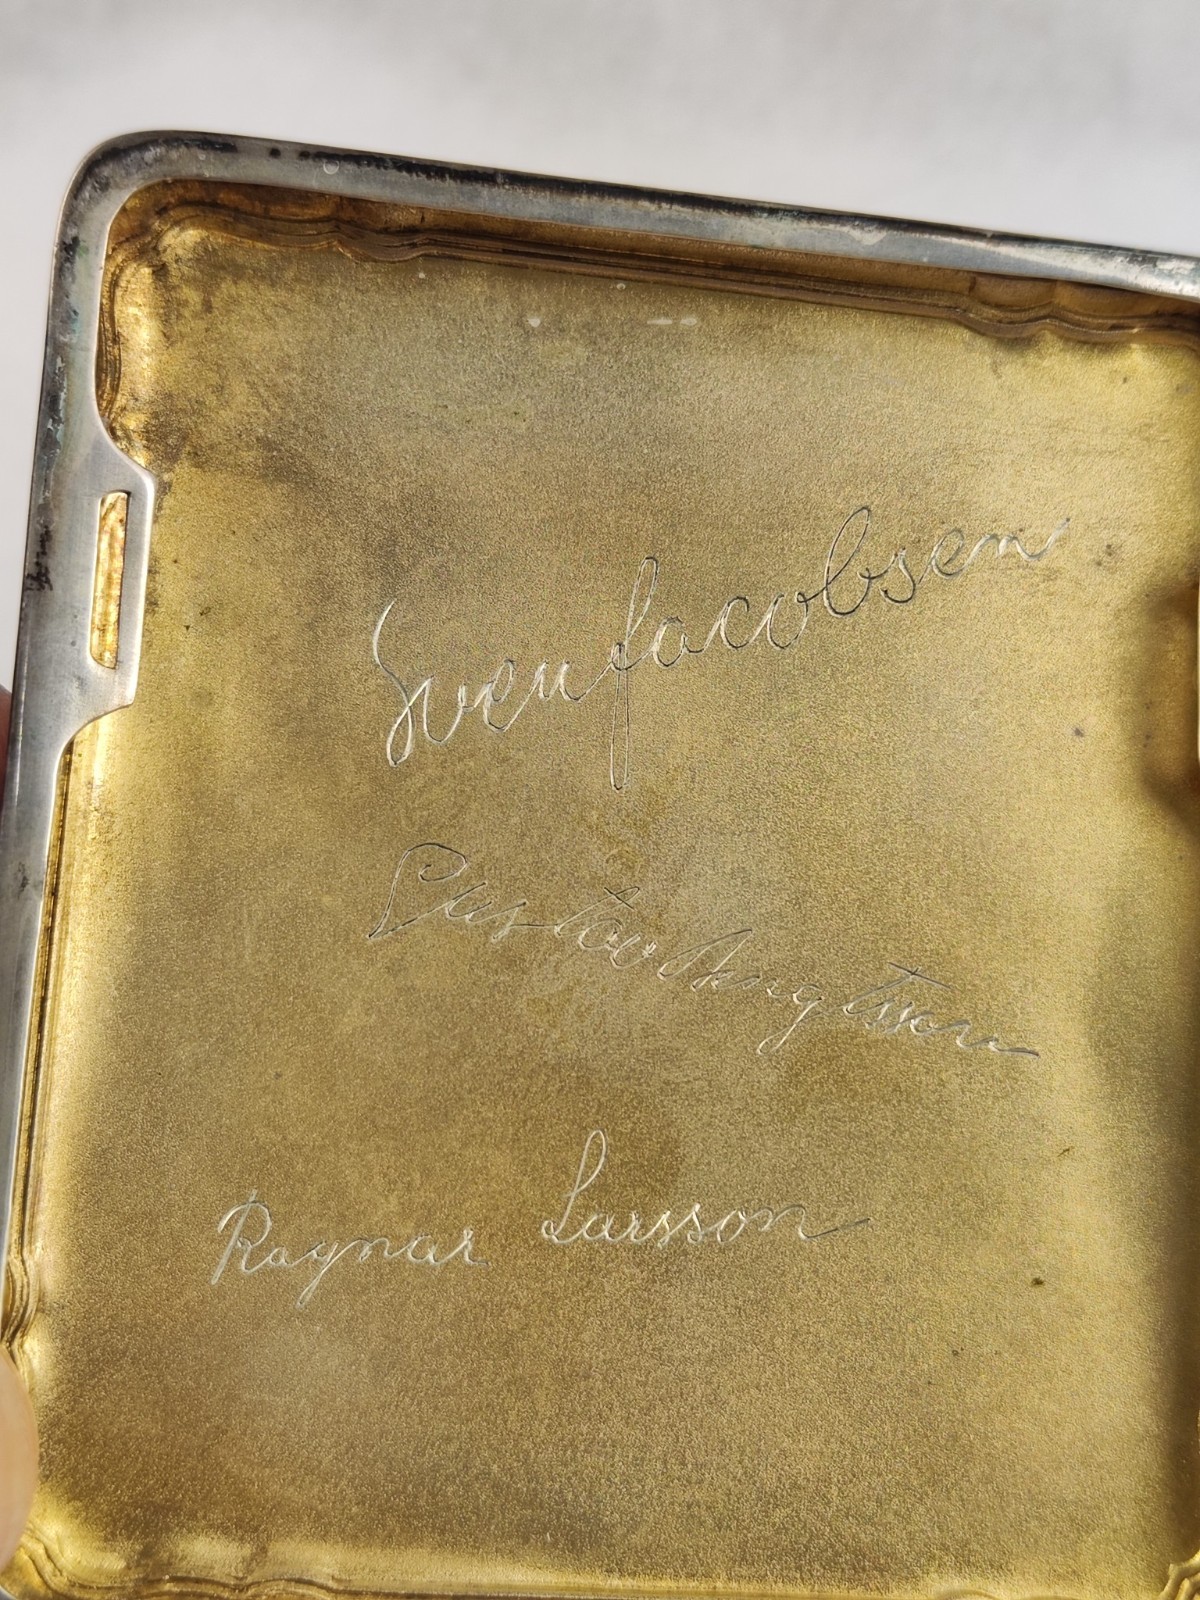 Sven Jacobsen
Gustav
Ragnar Larsson